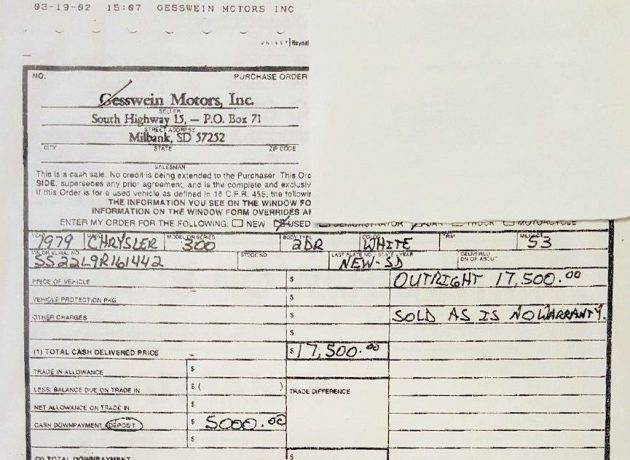 03-19-02 15:07 GESSWEIN MOTORS INC
NO. PURCHASE ORDER
Gesswein Motors, Inc.
SELLER
South Highway 15, — P.O. Box 71
STREET ADDRESS
Milbank, SD 57252
CITY STATE ZIP CODE
SALESMAN
This is a cash sale. No credit is being extended to the Purchaser. This Orc
SIDE, supersedes any prior agreement, and is the complete and exclusiv
If this Order is for a used vehicle as defined in 16 C.F.R. 455, the followin
THE INFORMATION YOU SEE ON THE WINDOW FO
INFORMATION ON THE WINDOW FORM OVERRIDES A
ENTER MY ORDER FOR THE FOLLOWING: NEW USED DEMONSTRATOR CAR TRUCK MOTORCYCLE
YEAR MAKE MODEL OR SERIES BODY TYPE COLOR TRIM MILEAGE
1979 CHRYSLER 300 2DR WHITE 53
STOCK NO
SS22L9R161442 NEW-SD
PRICE OF VEHICLE $ OUTRIGHT 17,500.00
VEHICLE PROTECTION PKG $
OTHER CHARGES $ SOLD AS IS NO WARRANTY.
$
(1) TOTAL CASH DELIVERED PRICE $17,500.00
TRADE IN ALLOWANCE $
LESS: BALANCE DUE ON TRADE IN $( ) TRADE DIFFERENCE
NET ALLOWANCE ON TRADE IN $
CASH DOWNPAYMENT (DEPOSIT) $ 5000.00
$
(2) TOTAL DOWNPAYMENT $